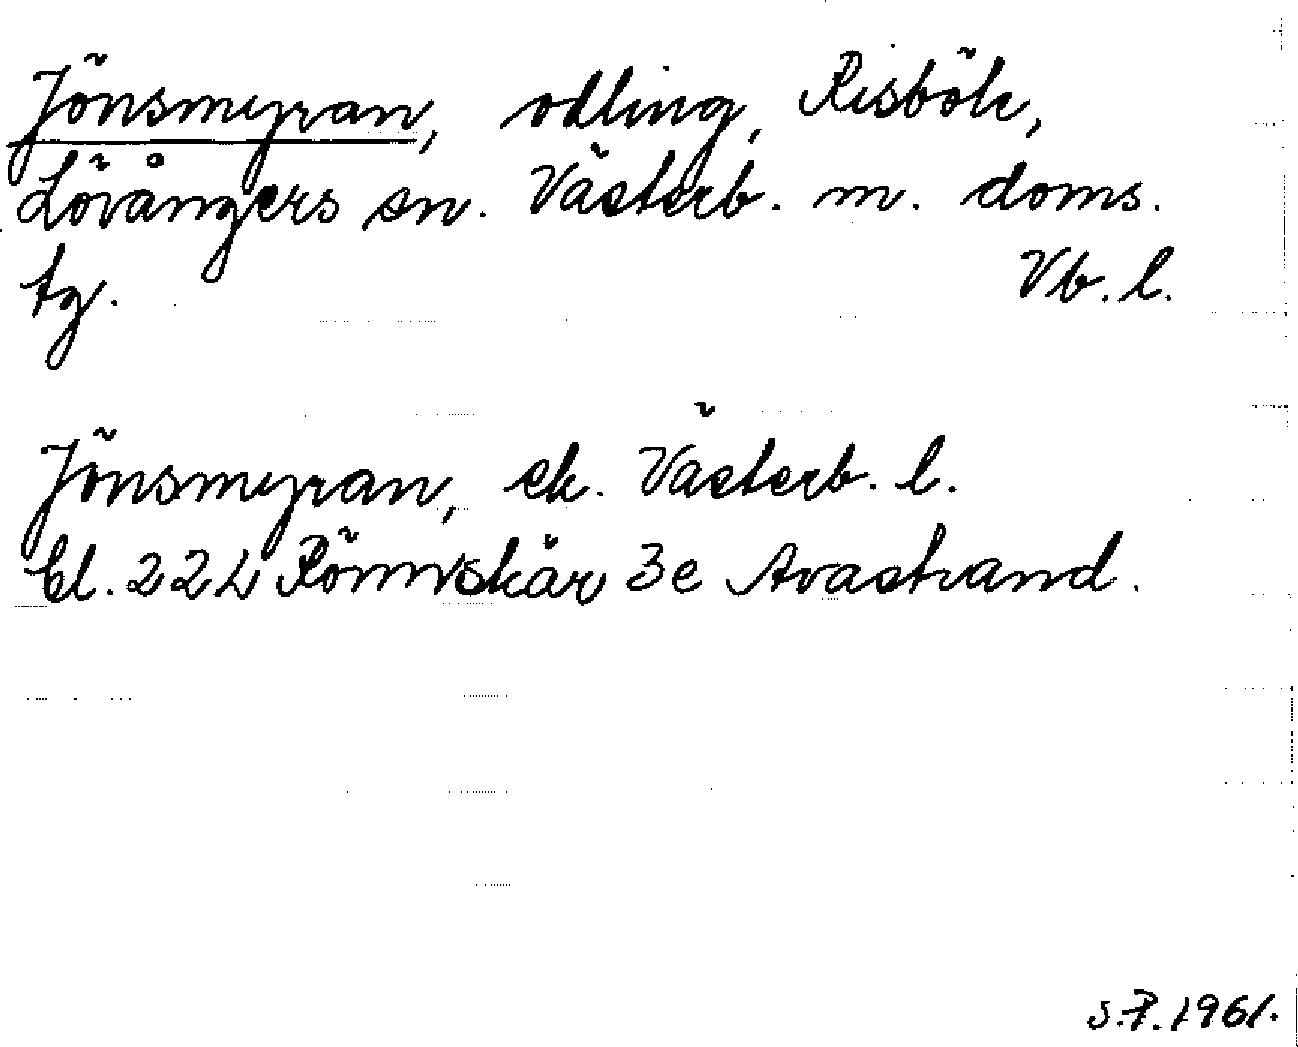 Jönsmyran, odling, Risböle,
Lövångers sn. Västerb. m. doms.
tg. Vb. l.
Jönsmyran, ek. Västerb. l.
Bl. 22L Rönnskär 3e Avastrand.
S.P. 1961.